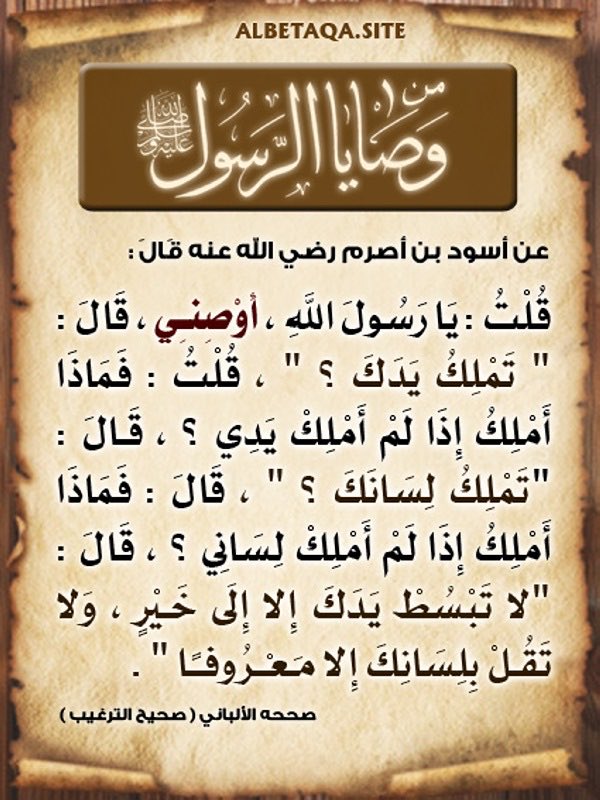 ALBETAQA.SITE
من وَصَايَا الرَّسُولِ ﷺ
عن أسود بن أصرم رضي الله عنه قَالَ :
قُلْتُ : يَا رَسُولَ اللَّهِ ، أَوْصِنِي ، قَالَ :
" تَمْلِكُ يَدَكَ ؟ " ، قُلْتُ : فَمَاذَا
أَمْلِكُ إِذَا لَمْ أَمْلِكْ يَدِي ؟ ، قَالَ :
"تَمْلِكُ لِسَانَكَ ؟ " ، قَالَ : فَمَاذَا
أَمْلِكُ إِذَا لَمْ أَمْلِكْ لِسَانِي ؟ ، قَالَ :
"لا تَبْسُطْ يَدَكَ إِلا إِلَى خَيْرٍ ، وَلا
تَقُلْ بِلِسَانِكَ إِلا مَعْرُوفًا " .
صححه الألباني ( صحيح الترغيب )